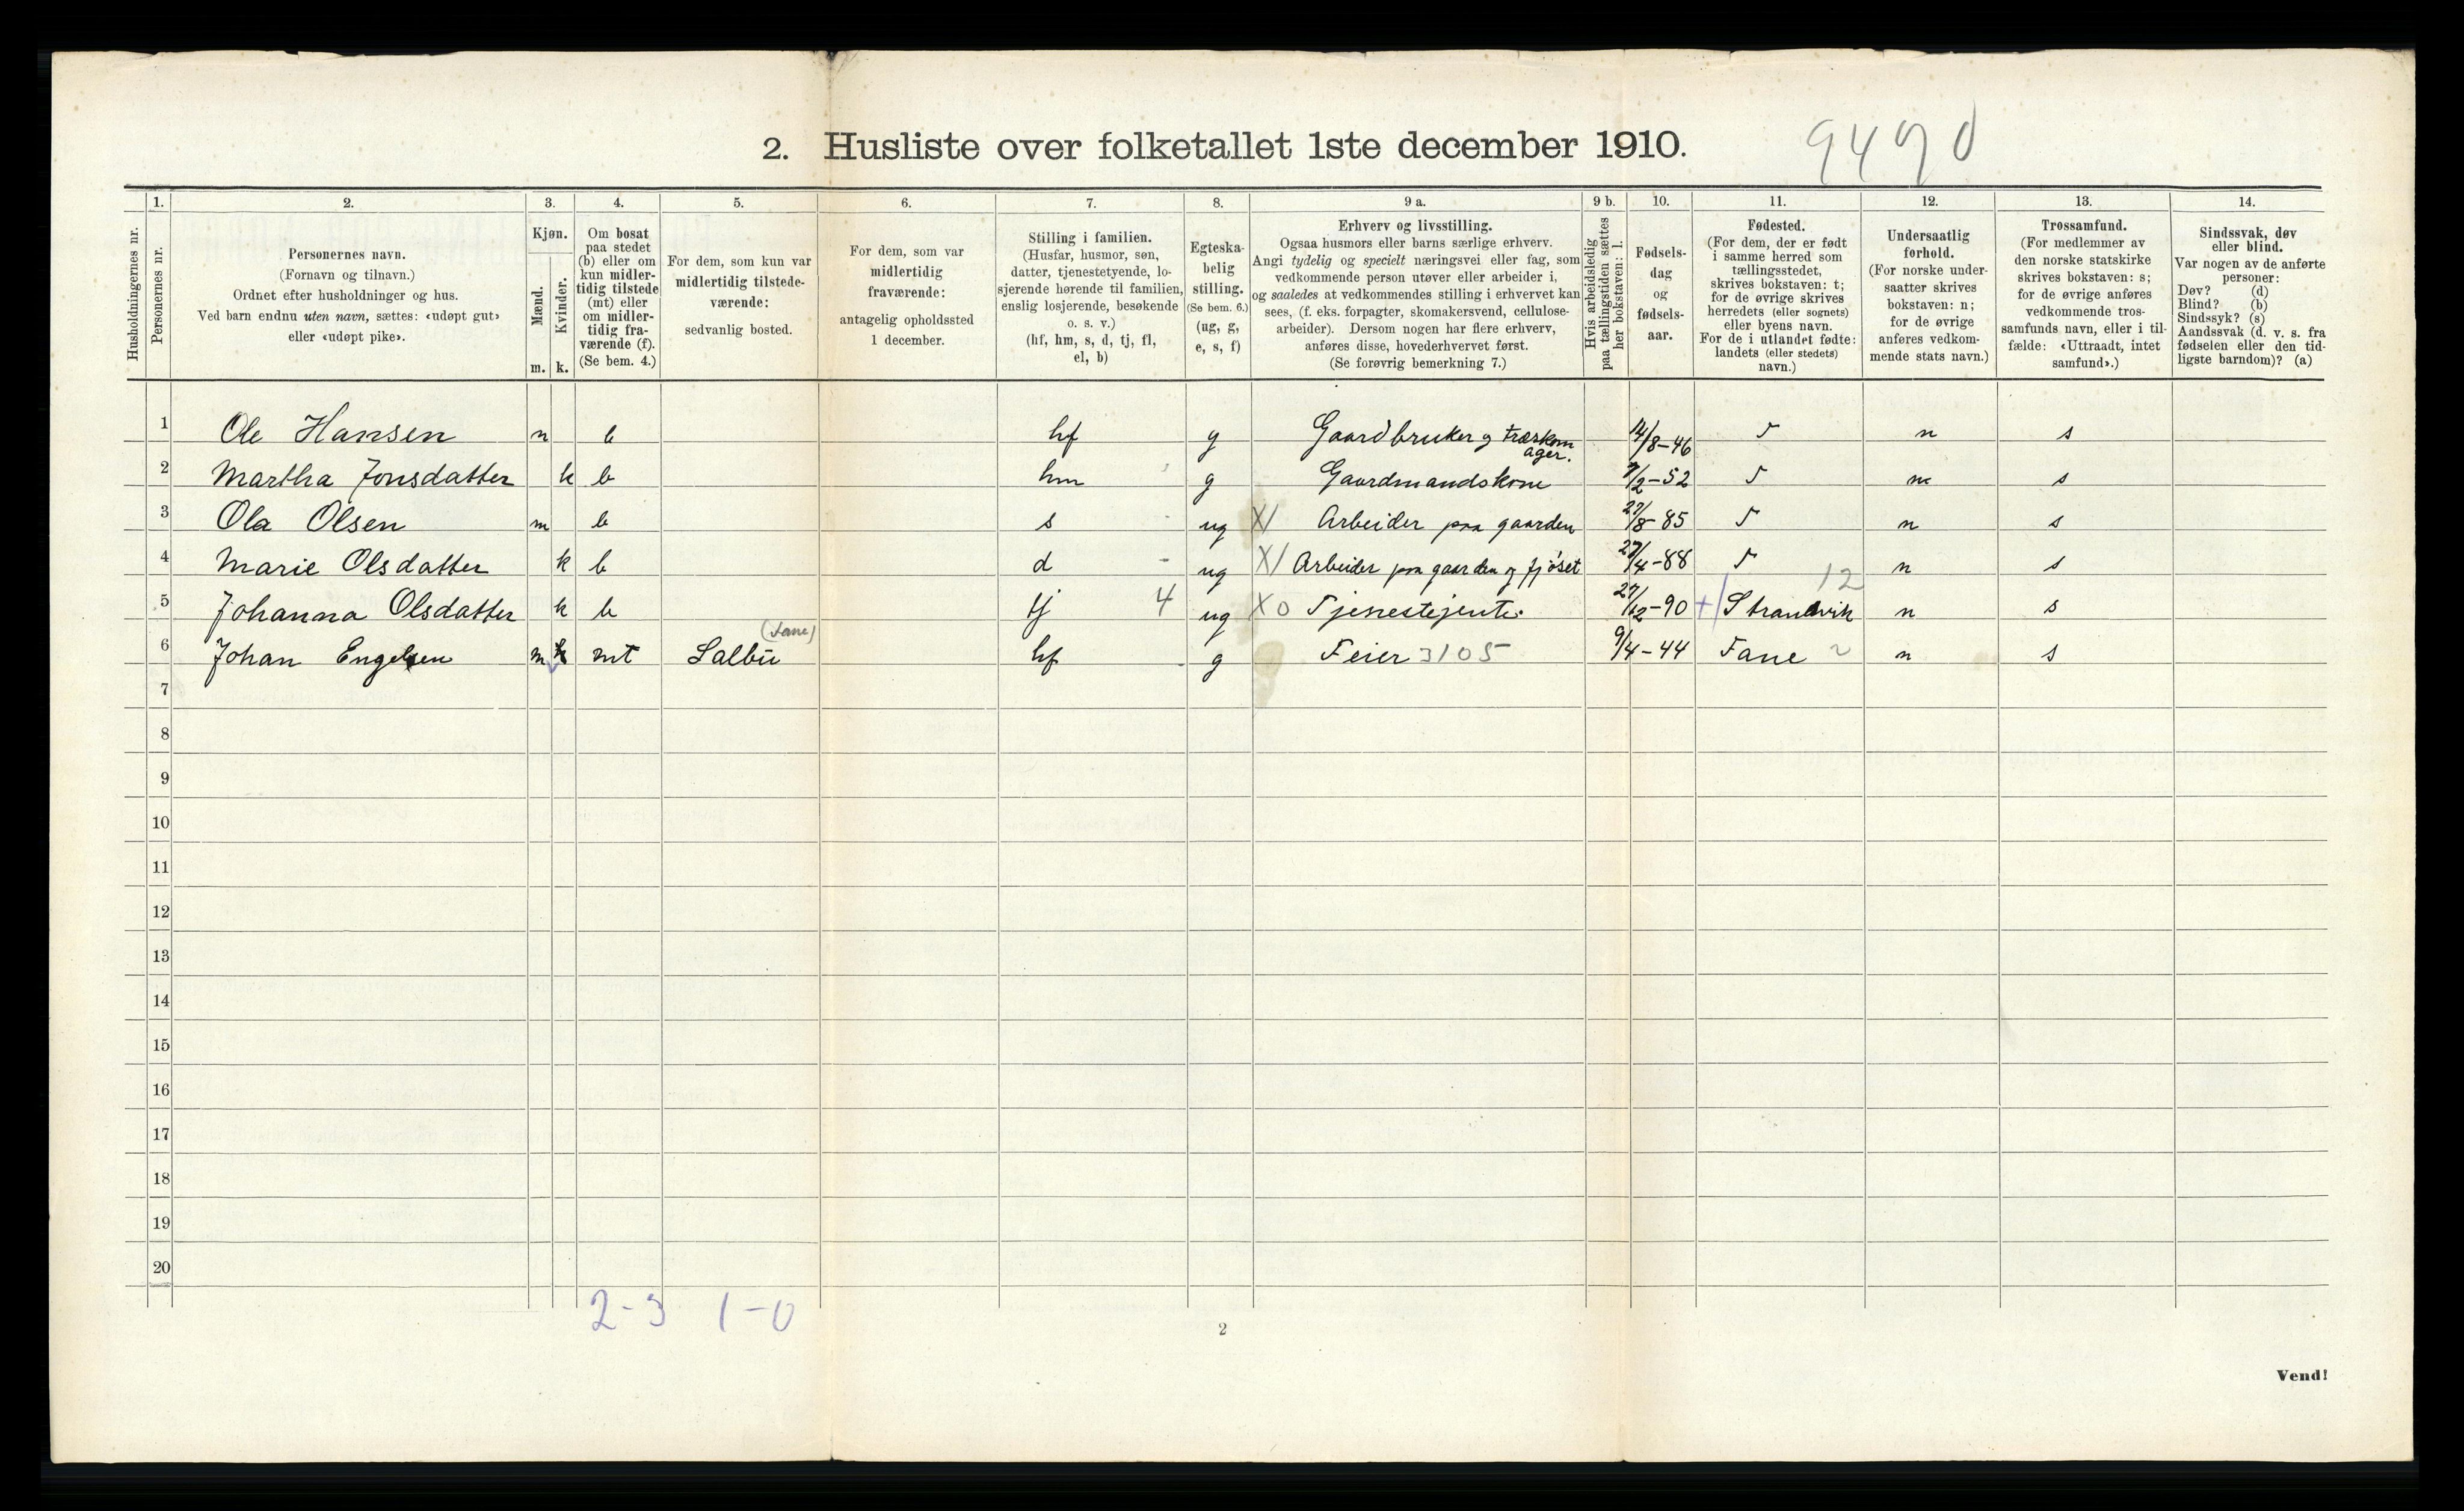 2. Husliste over folketallet 1ste december 1910.
9490
Husholdningernes nr.
1. Personernes nr.
2. Personernes navn.
(Fornavn og tilnavn.)
Ordnet efter husholdninger og hus.
Ved barn endnu uten navn, sættes: «udøpt gut»
eller «udøpt pike».
3. Kjøn.
Mænd. m.
Kvinder. k.
4. Om bosat
paa stedet
(b) eller om
kun midler-
tidig tilstede
(mt) eller
om midler-
tidig fra-
værende (f).
(Se bem. 4.)
5. For dem, som kun var
midlertidig tilstede-
værende:
sedvanlig bosted.
6. For dem, som var
midlertidig
fraværende:
antagelig opholdssted
1 december.
7. Stilling i familien.
(Husfar, husmor, søn,
datter, tjenestetyende, lo-
sjerende hørende til familien,
enslig losjerende, besøkende
o. s. v.)
(hf, hm, s, d, tj, fl,
el, b)
8. Egteska-
belig
stilling.
(Se bem. 6.)
(ug, g,
e, s, f)
9 a. Erhverv og livsstilling.
Ogsaa husmors eller barns særlige erhverv.
Angi tydelig og specielt næringsvei eller fag, som
vedkommende person utøver eller arbeider i,
og saaledes at vedkommendes stilling i erhvervet kan
sees, (f. eks. forpagter, skomakersvend, cellulose-
arbeider). Dersom nogen har flere erhverv,
anføres disse, hovederhvervet først.
(Se forøvrig bemerkning 7.)
9 b. Hvis arbeidsledig
paa tællingstiden sættes
her bokstaven: l.
10. Fødsels-
dag
og
fødsels-
aar.
11. Fødested.
(For dem, der er født
i samme herred som
tællingsstedet,
skrives bokstaven: t;
for de øvrige skrives
herredets (eller sognets)
eller byens navn.
For de i utlandet fødte:
landets (eller stedets)
navn.)
12. Undersaatlig
forhold.
(For norske under-
saatter skrives
bokstaven: n;
for de øvrige
anføres vedkom-
mende stats navn.)
13. Trossamfund.
(For medlemmer av
den norske statskirke
skrives bokstaven: s;
for de øvrige anføres
vedkommende tros-
samfunds navn, eller i til-
fælde: «Uttraadt, intet
samfund».)
14. Sindssvak, døv
eller blind.
Var nogen av de anførte
personer:
Døv? (d)
Blind? (b)
Sindssyk? (s)
Aandssvak (d. v. s. fra
fødselen eller den tid-
ligste barndom)? (a)
1 Ole Hansen m b hf g Gaardbruker og 14/8-46 T n s
2 Martha Jonsdatter k b hm g Gaardmandskone 7/2-52 T n s
3 Ola Olsen m b s ug X/ Arbeider paa gaarden 29/8-85 T n s
4 Marie Olsdatter k b d ug X/ Arbeider paa gaarden og fjöset 27/4-88 T n s
5 Johanna Olsdatter k b tj 4 ug X0 Tjenestejente. 27/12-90 Strandvik 12 n s
6 Johan Engelsen m mt Salbu (Fane) hf g Feier 3105 9/4-44 Fane 2 n s
7
8
9
10
11
12
13
14
15
16
17
18
19
20
2-3 1-0
2
Vend!